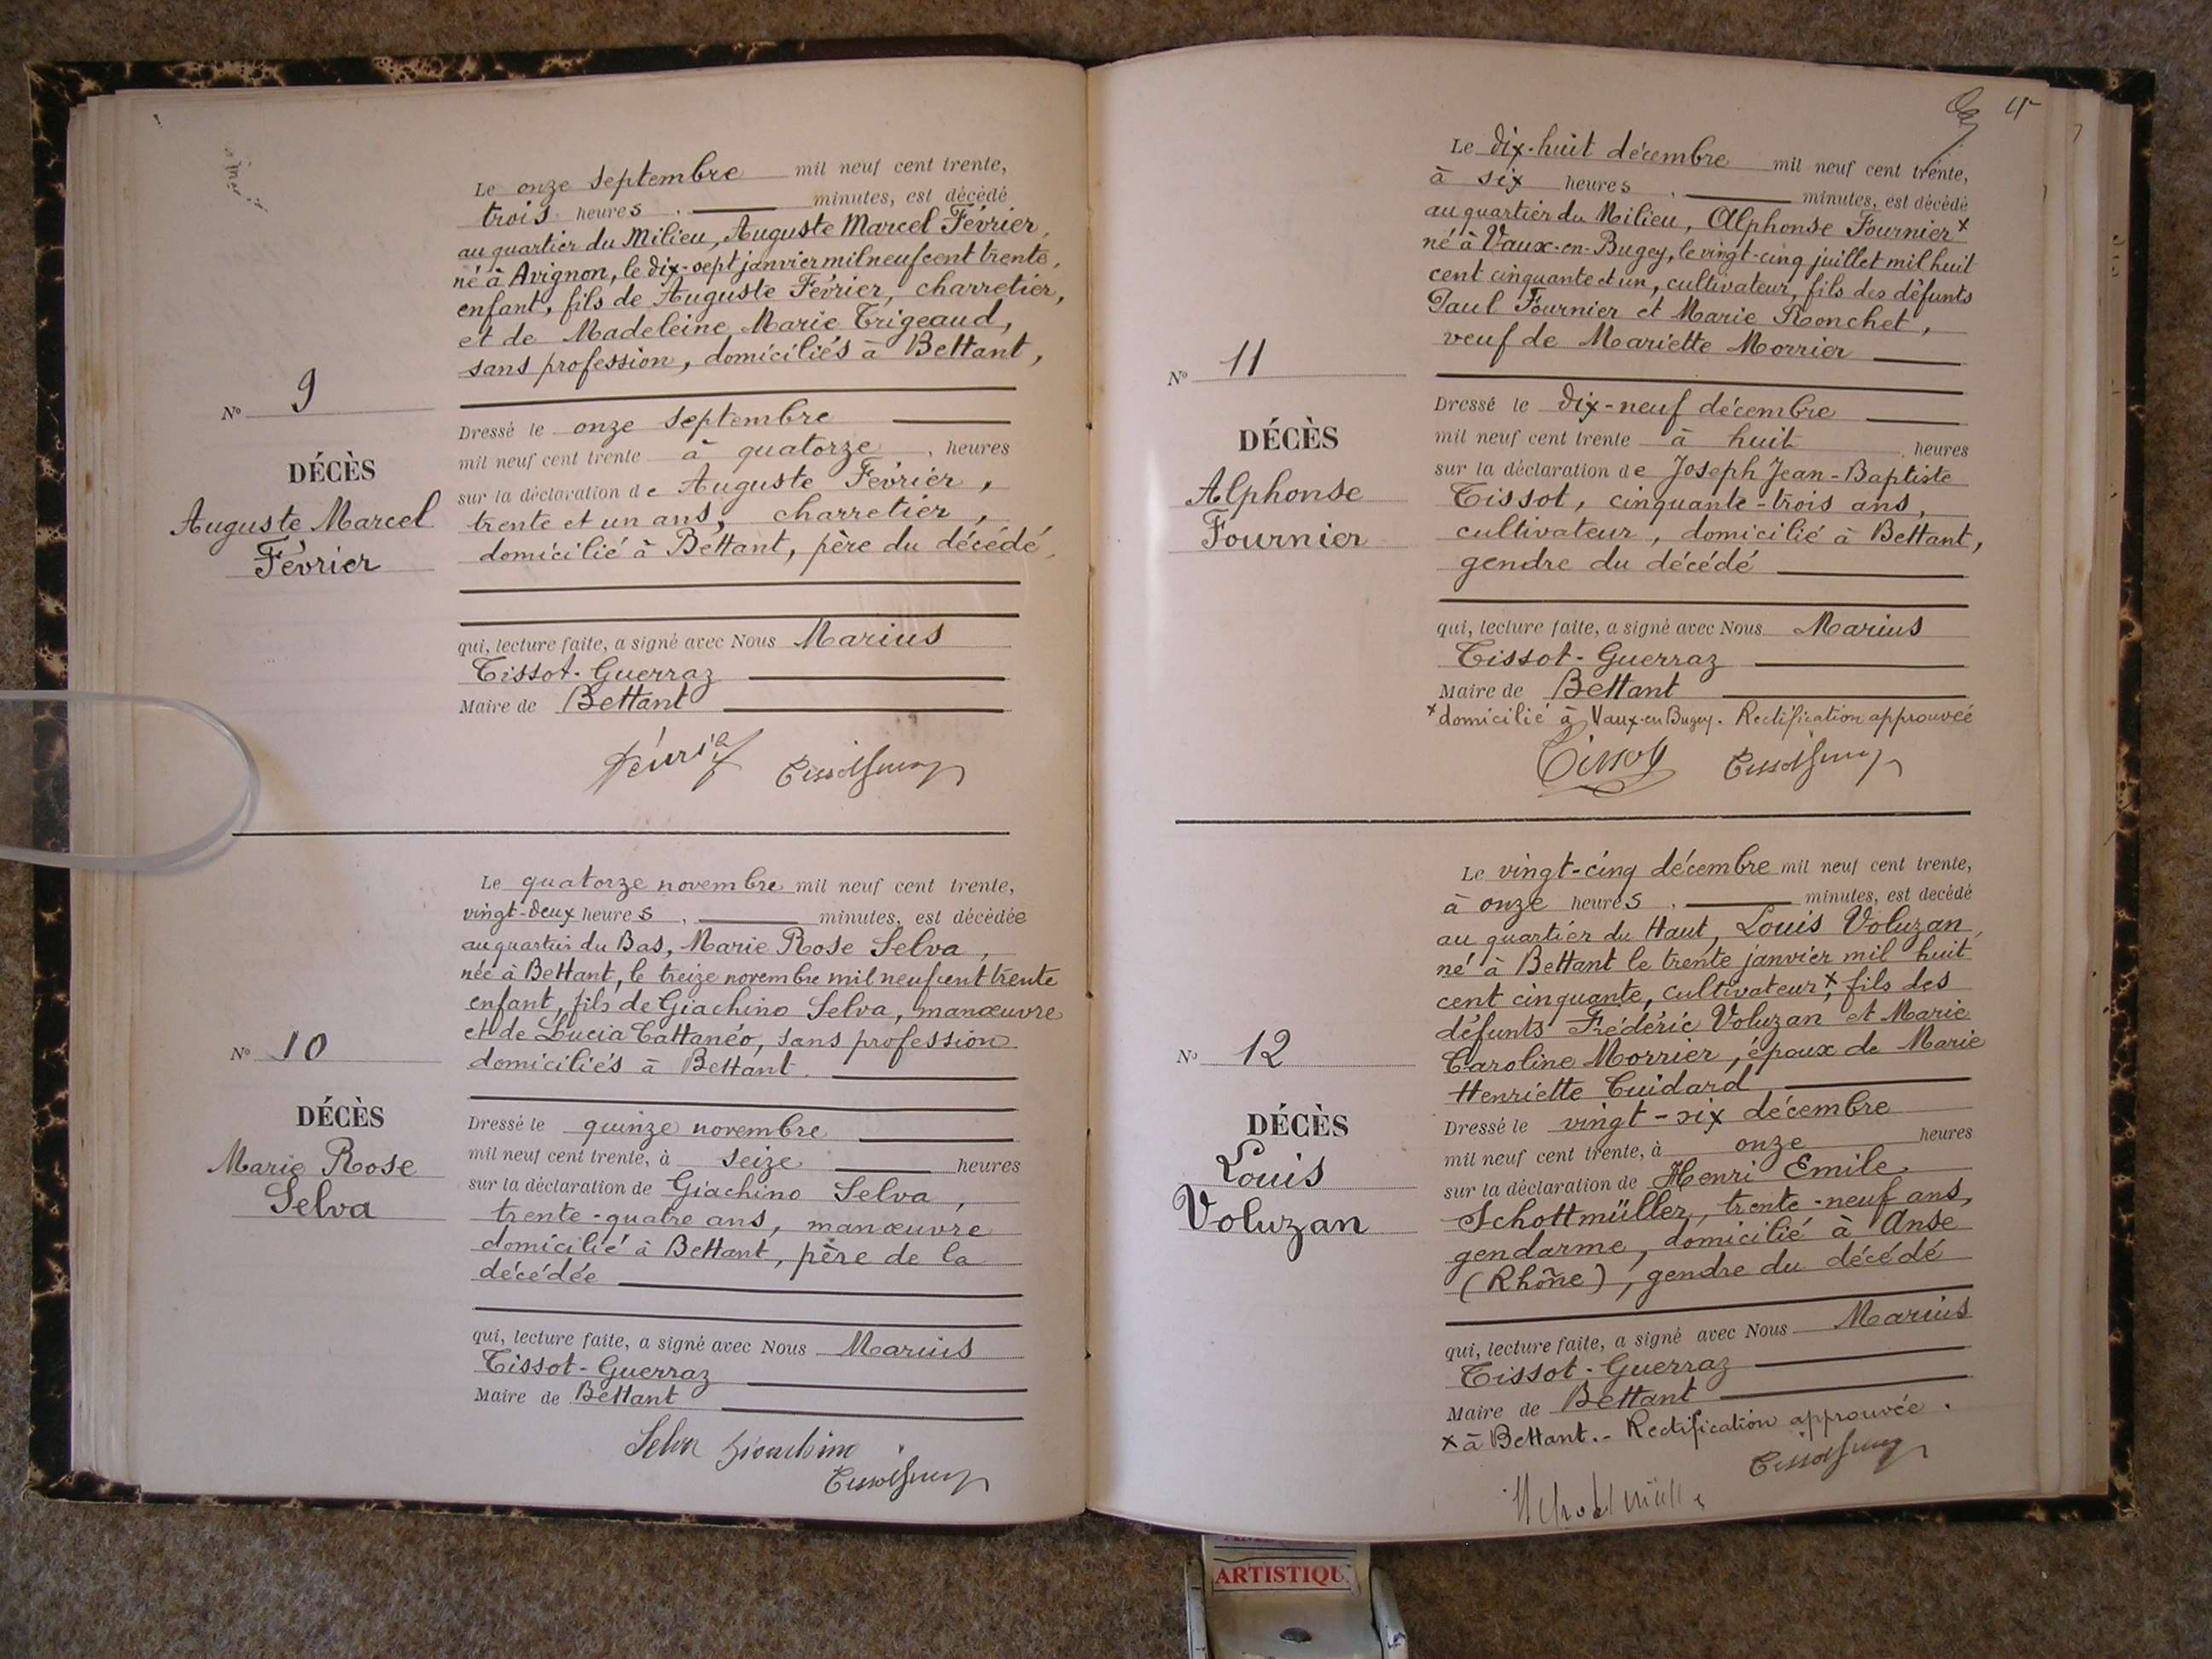 Le onze septembre mil neuf cent trente,
trois heures . minutes, est décédé
au quartier du Milieu, Auguste Marcel Février,
né à Avignon, le dix-sept janvier mil neuf cent trente,
enfant, fils de Auguste Février, charretier,
et de Madeleine Marie Trigeaud,
sans profession, domiciliés à Bettant,
N° 9
DÉCÈS
Auguste Marcel
Février
Dressé le onze septembre
mil neuf cent trente à quatorze . heures
sur la déclaration de Auguste Février,
trente et un ans, charretier,
domicilié à Bettant, père du décédé
qui, lecture faite, a signé avec Nous Marius
Tissot-Guerraz
Maire de Bettant
Février
Le quatorze novembre mil neuf cent trente,
vingt-deux heures . minutes, est décédée
au quartier du Bas, Marie Rose Selva,
née à Bettant, le treize novembre mil neuf cent trente
enfant, fils de Giachino Selva, manœuvre
et de Lucia Cattanéo, sans profession
domiciliés à Bettant.
N° 10
DÉCÈS
Marie Rose
Selva
Dressé le quinze novembre
mil neuf cent trente, à seize heures
sur la déclaration de Giachino Selva,
trente-quatre ans, manœuvre
domicilié à Bettant, père de la
décédée
qui, lecture faite, a signé avec Nous Marius
Tissot-Guerraz
Maire de Bettant
Selva Giachino
Le dix-huit décembre mil neuf cent trente,
à six heures . minutes, est décédé
au quartier du Milieu, Alphonse Fournier x
né à Vaux-en-Bugey, le vingt-cinq juillet mil huit
cent cinquante et un, cultivateur, fils des défunts
Paul Fournier et Marie Ronchet,
veuf de Mariette Morrier
N° 11
DÉCÈS
Alphonse
Fournier
Dressé le dix-neuf décembre
mil neuf cent trente à huit . heures
sur la déclaration de Joseph Jean-Baptiste
Tissot, cinquante-trois ans,
cultivateur, domicilié à Bettant,
gendre du décédé
qui, lecture faite, a signé avec Nous Marius
Tissot-Guerraz
Maire de Bettant
x domicilié à Vaux-en-Bugey. Rectification approuvée
Tissot
Le vingt-cinq décembre mil neuf cent trente,
à onze heures . minutes, est decédé
au quartier du Haut, Louis Voluzan,
né à Bettant le trente janvier mil huit
cent cinquante, cultivateur x, fils des
défunts Frédéric Voluzan et Marie
Caroline Morrier, époux de Marie
Henriette Cuidard
N° 12
DÉCÈS
Louis
Voluzan
Dressé le vingt-six décembre
mil neuf cent trente, à onze heures
sur la déclaration de Henri Emile
Schottmüller, trente-neuf ans,
gendarme, domicilié à Anse
(Rhône), gendre du décédé
qui, lecture faite, a signé avec Nous Marius
Tissot-Guerraz
Maire de Bettant
x à Bettant.- Rectification approuvée.
ARTISTIQU